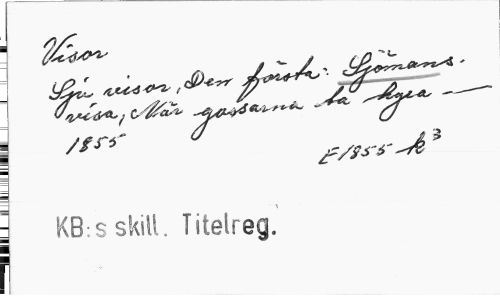 Visor
Sju visor, Den första: Sjömans-
visa, När gossarna ta hyra —
1855
E1855 k³
KB:s skill. Titelreg.